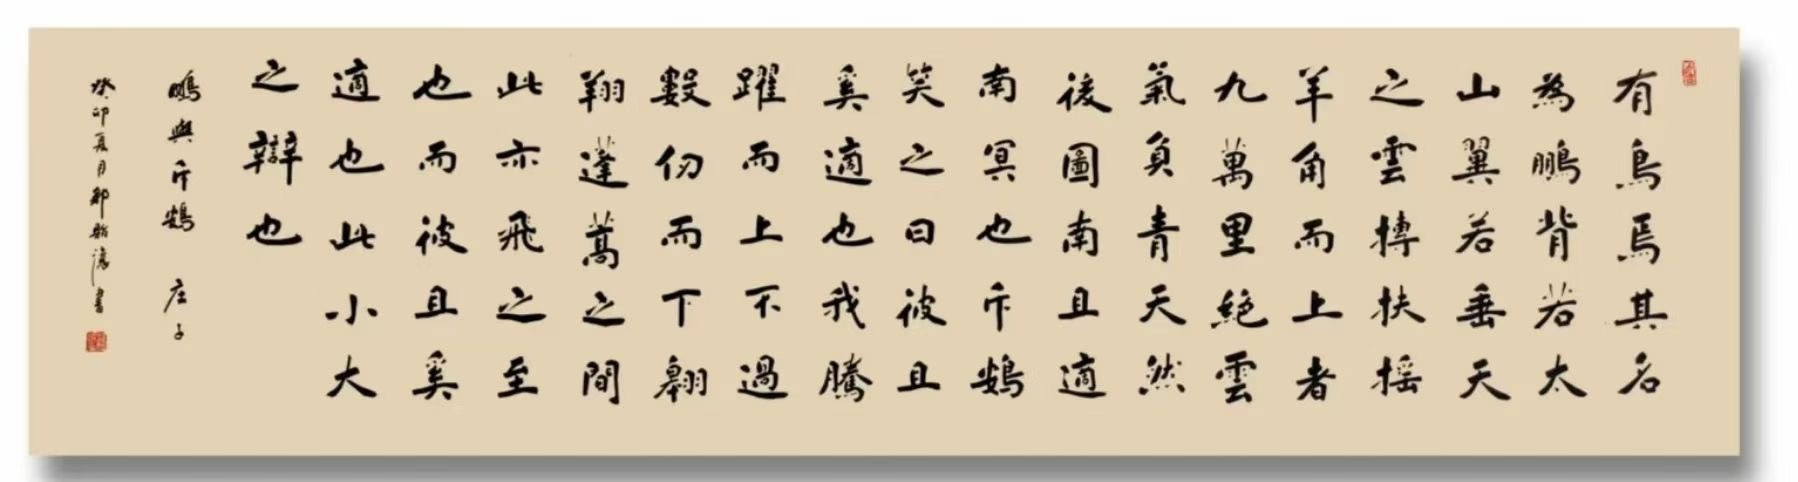 有鳥焉其名
為鵬背若太
山翼若垂天
之雲摶扶摇
羊角而上者
九萬里絕雲
氣負青天然
後圖南且適
南冥也斥鴳
笑之曰彼且
奚適也我騰
躍而上不過
數仞而下翱
翔蓬蒿之間
此亦飛之至
也而彼且奚
適也此小大
之辯也
鵬與斥鴳 庄子
癸卯夏月 書